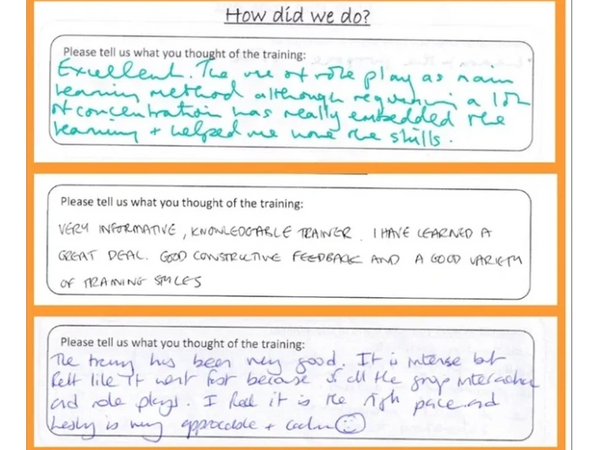 How did we do?
Please tell us what you thought of the training:
Excellent. The use of role play as main
learning method although requiring a lot
of concentration has really embedded the
learning + helped me hone the skills.
Please tell us what you thought of the training:
VERY INFORMATIVE, KNOWLEDGABLE TRAINER. I HAVE LEARNED A
GREAT DEAL. GOOD CONSTRUCTIVE FEEDBACK AND A GOOD VARIETY
OF TRAINING STYLES
Please tell us what you thought of the training:
The training has been very good. It is intense but
felt like it went fast because of all the group interaction
and role plays. I feel it is the right pace and
Lesley is very approcable + calm